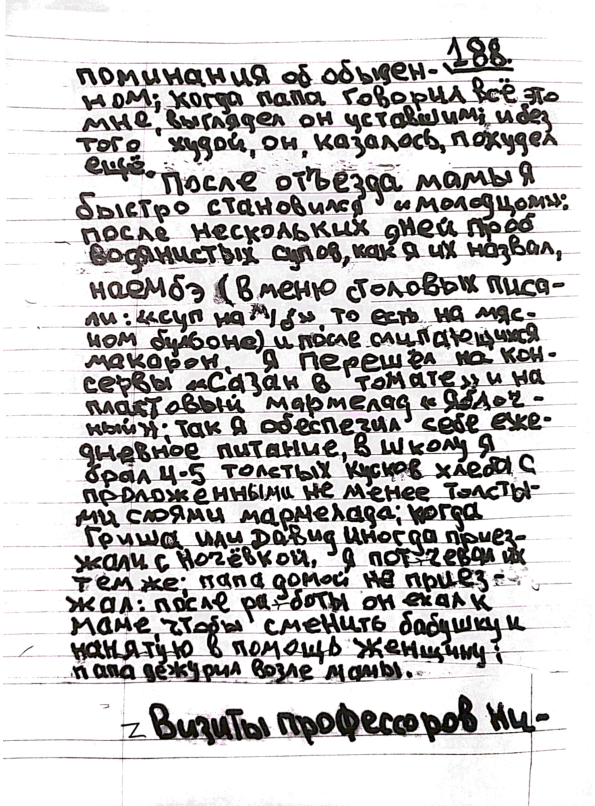 188.
поминания об обыден-
ном; когда папа говорил всё это
мне, выглядел он уставшим; и без
того худой, он, казалось, похудел
ещё.
После отъезда мамы я
быстро становился «молодцом»:
после нескольких дней проб
водянистых супов, как я их назвал,
наембэ (в меню столовых писа-
ли: «суп на м/б» то есть на мяс-
ном бульоне) и после слипающихся
макарон, я перешёл на кон-
сервы «Сазан в томате» и на
пластовый мармелад «Яблоч-
ный»; так я обеспечил себе еже-
дневное питание, в школу я
брал 4-5 толстых кусков хлеба с
проложенными не менее толсты-
ми слоями мармелада; когда
Гриша или Давид иногда приез-
жали с ночёвкой, я потчевал их
тем же; папа домой не приез-
жал: после работы он ехал к
маме, чтобы сменить бабушку и
нанятую в помощь женщину;
папа дежурил возле мамы.
Z Визиты профессоров ни-